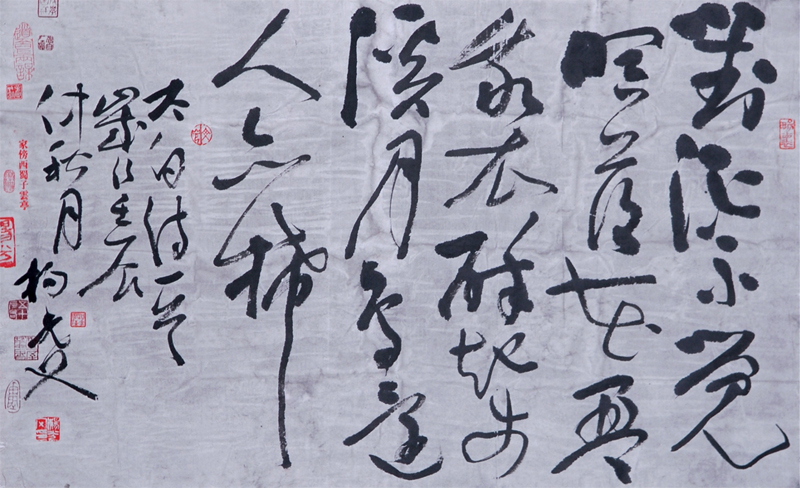 對酒不覺
暝落花盈
我衣醉起步
溪月鳥還
人亦稀
太白詩一首
歲次壬辰
秋月 楊
家傍西蜀子雲亭